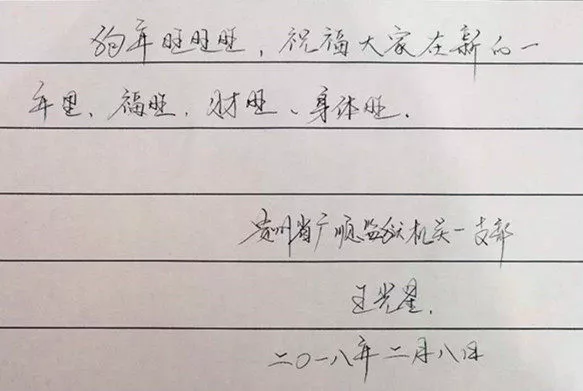 狗年旺旺旺，祝福大家在新的一
年里、福旺、财旺、身体旺.
贵州省广顺监狱机关一支部
王光星.
二〇一八年二月八日